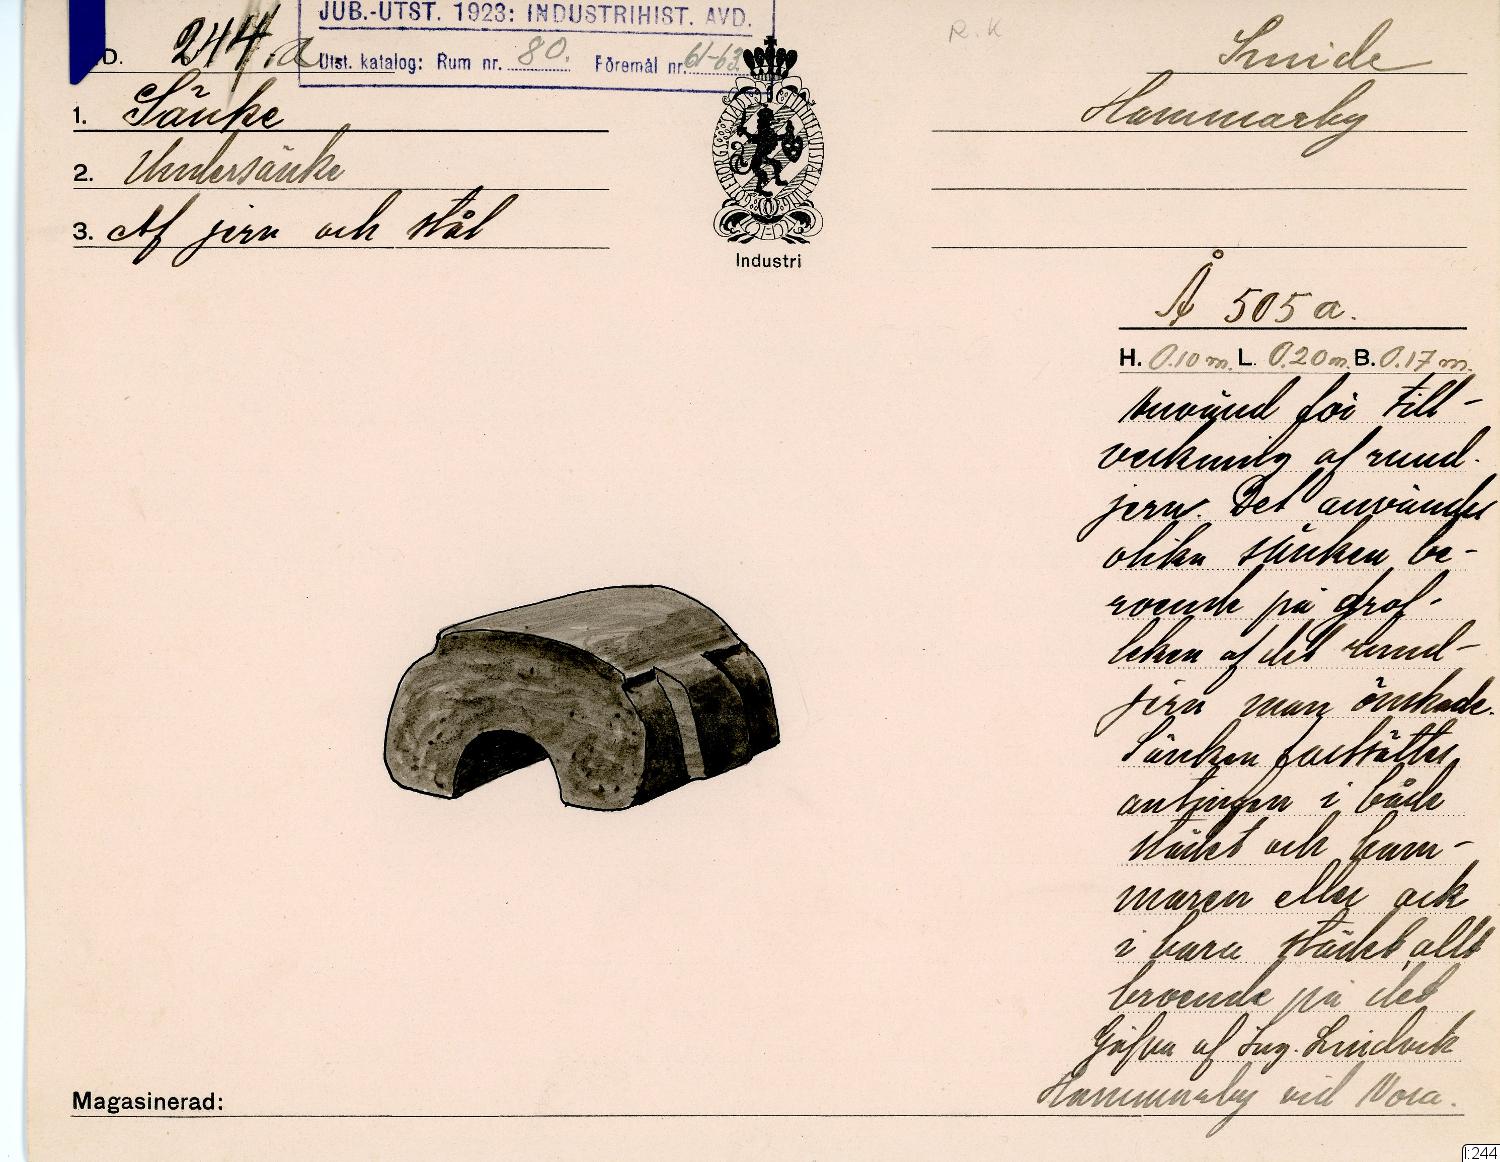 JUB.-UTST. 1923: INDUSTRIHIST. AVD.
Utst. katalog: Rum nr. 80. Föremål nr. 61-63
D. 244.a
1. Sänke
2. Undersänke
3. Af jern och stål
Industri
R.K
Smide
Hammarby
Å 505 a.
H. 0.10 m. L. 0.20 m. B. 0.17 m.
Använd för till-
verkning af rund-
jern. Det användes
olika sänken be-
roende på grof-
leken af det rund-
jern man önskade.
Sänken fastsättes
antingen i både
städet och ham-
maren eller ock
i bara städet, allt
beroende på det
Gåfva af Ing.
Hammarby vid Nora.
Magasinerad:
I:244